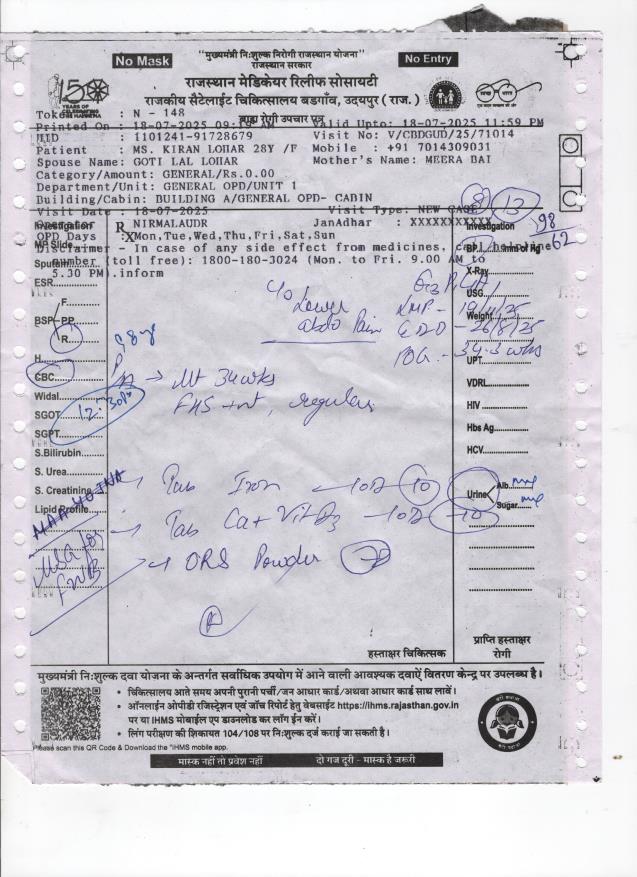 No Mask
"मुख्यमंत्री निःशुल्क निरोगी राजस्थान योजना"
राजस्थान सरकार
No Entry
राजस्थान मेडिकेयर रिलीफ सोसायटी
राजकीय सैटेलाईट चिकित्सालय बडगाँव, उदयपुर (राज.)
बाह्य रोगी उपचार पत्र
150
YEARS OF
CELEBRATING
THE MAHATMA
Token : N - 148
Printed On : 18-07-2025 09: AM Valid Upto: 18-07-2025 11:59 PM
UID : 1101241-91728679 Visit No: V/CBDGUD/25/71014
Patient : MS. KIRAN LOHAR 28Y /F Mobile : +91 7014309031
Spouse Name: GOTI LAL LOHAR Mother's Name: MEERA BAI
Category/Amount: GENERAL/Rs.0.00
Department/Unit: GENERAL OPD/UNIT 1
Building/Cabin: BUILDING A/GENERAL OPD- CABIN
Visit Date : 18-07-2025 Visit Type: NEW CASE
Operator : NIRMALAUDR JanAadhar : XXXXXXXXXXX
OPD Days : Mon,Tue,Wed,Thu,Fri,Sat,Sun
Disclaimer - In case of any side effect from medicines, call helpline
number (toll free): 1800-180-3024 (Mon. to Fri. 9.00 AM to
5.30 PM).inform
8 13
98
62
Investigation
Rx
MP Slide
Sputum
ESR
F.
BSP PP
R.
H
CBC
Widal
SGOT
SGPT
S.Bilirubin
S. Urea
S. Creatinine
Lipid Profile
Investigation
BP mm of Hg
X-Ray
USG
Weight
UPT
VDRL
HIV
Hbs Ag
HCV
Urine
Alb. nil
Sugar nil
C/o Lower
abdo Pain
LMP - 19/11/25
EDD - 26/8/25
POG - 34.3 wks
P/A → Ut 34wks
FHS +nt, regular
12:30pm
→ Tab Iron — 10D 10
→ Tab Ca + Vit D3 — 10D 10
→ ORS Powder
USG for
FWB
हस्ताक्षर चिकित्सक
प्राप्ति हस्ताक्षर
रोगी
मुख्यमंत्री निःशुल्क दवा योजना के अन्तर्गत सर्वाधिक उपयोग में आने वाली आवश्यक दवाऐं वितरण केन्द्र पर उपलब्ध है।
• चिकित्सालय आते समय अपनी पुरानी पर्ची/जन आधार कार्ड/अथवा आधार कार्ड साथ लावें।
• ऑनलाईन ओपीडी रजिस्ट्रेशन एवं जाँच रिपोर्ट हेतु वेबसाईट https://ihms.rajasthan.gov.in
पर या IHMS मोबाईल एप डाउनलोड कर लॉग ईन करें।
• लिंग परीक्षण की शिकायत 104/108 पर निःशुल्क दर्ज कराई जा सकती है।
Please scan this QR Code & Download the "IHMS mobile app.
मास्क नहीं तो प्रवेश नहीं दो गज दूरी - मास्क है जरूरी